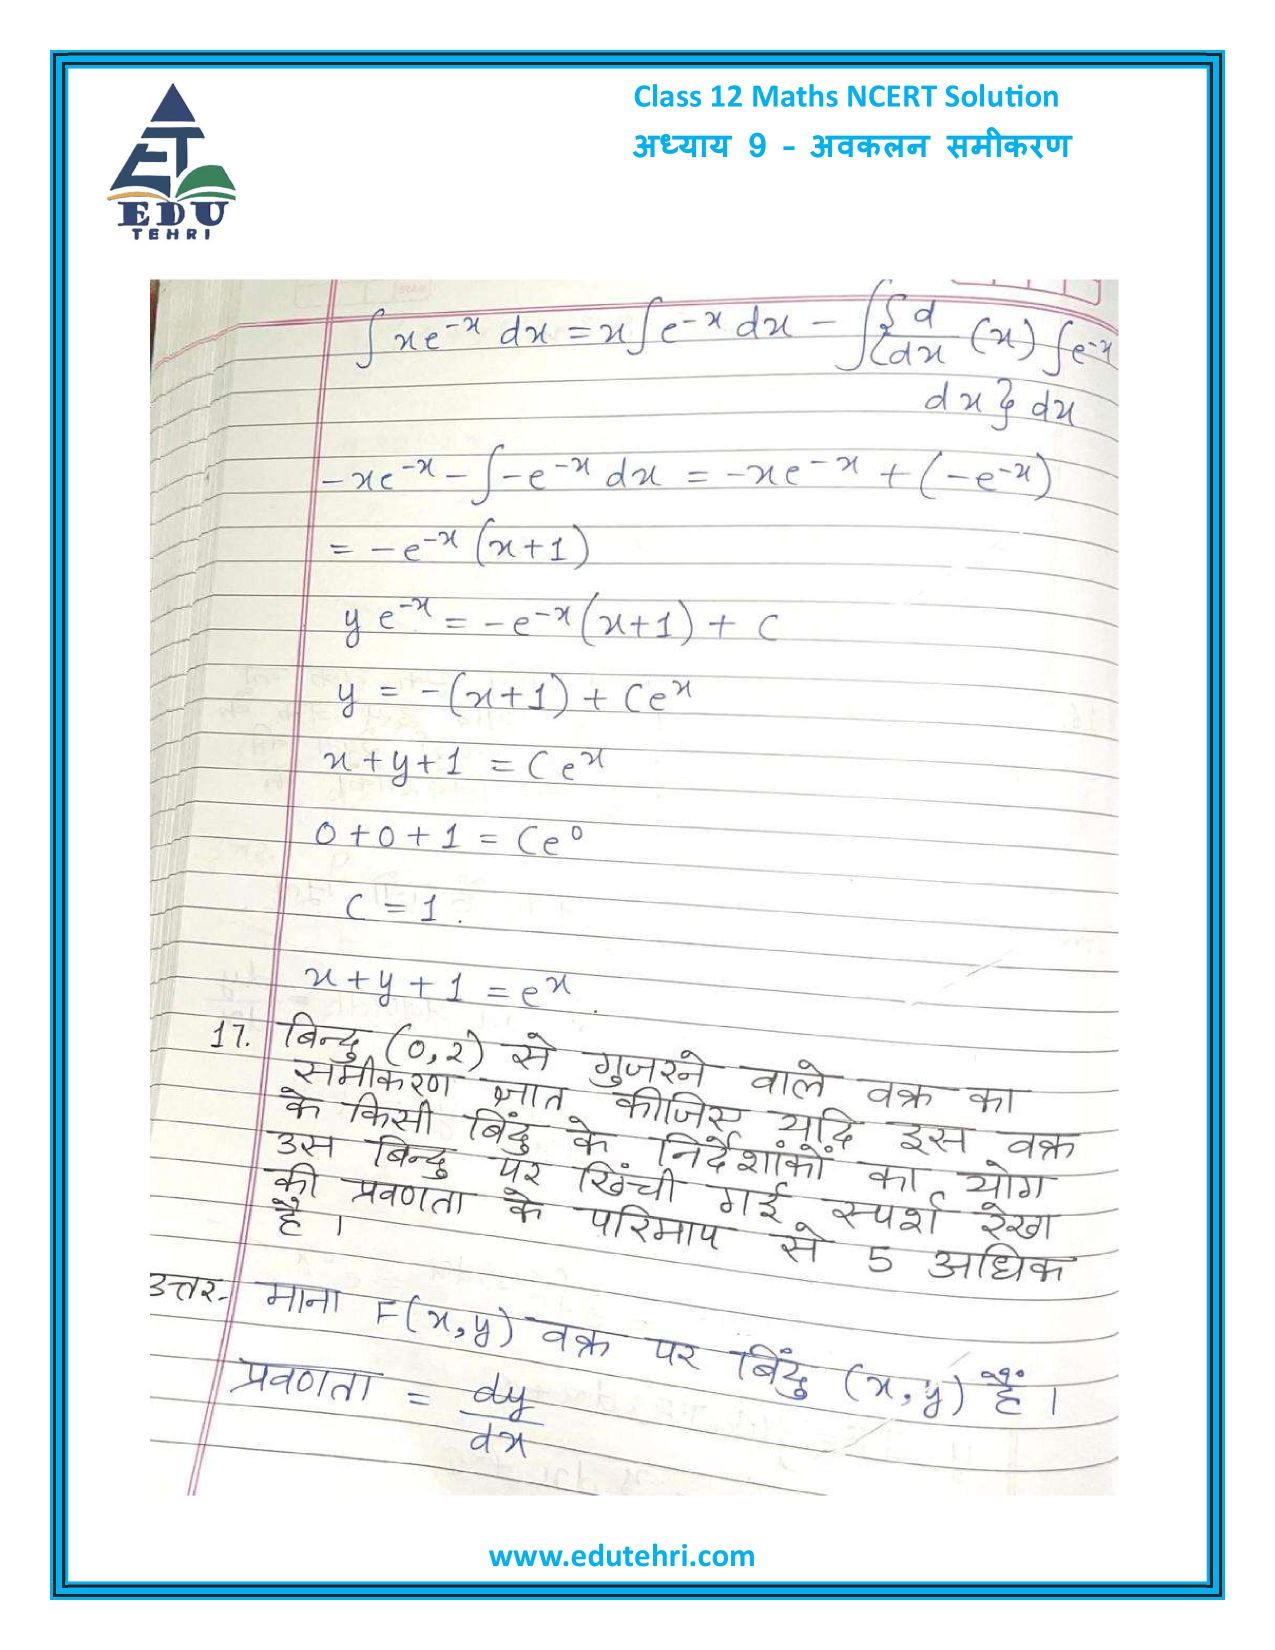 Class 12 Maths NCERT Solution
अध्याय 9 - अवकलन समीकरण
EDU
TEHRI
∫ xe⁻ˣ dx = x∫e⁻ˣ dx - ∫{d/dx (x) ∫e⁻ˣ
dx} dx
-xe⁻ˣ - ∫-e⁻ˣ dx = -xe⁻ˣ + (-e⁻ˣ)
= -e⁻ˣ (x+1)
y e⁻ˣ = -e⁻ˣ(x+1) + C
y = -(x+1) + Ceˣ
x+y+1 = Ceˣ
0+0+1 = Ce⁰
C = 1.
x+y+1 = eˣ.
17. बिन्दु (0,2) से गुजरने वाले वक्र का
समीकरण ज्ञात कीजिए यदि इस वक्र
के किसी बिंदु के निर्देशांकों का योग
उस बिन्दु पर खिंची गई स्पर्श रेखा
की प्रवणता के परिमाप से 5 अधिक
है।
उत्तर- माना F(x,y) वक्र पर बिंदु (x,y) हैं।
प्रवणता = dy/dx
www.edutehri.com